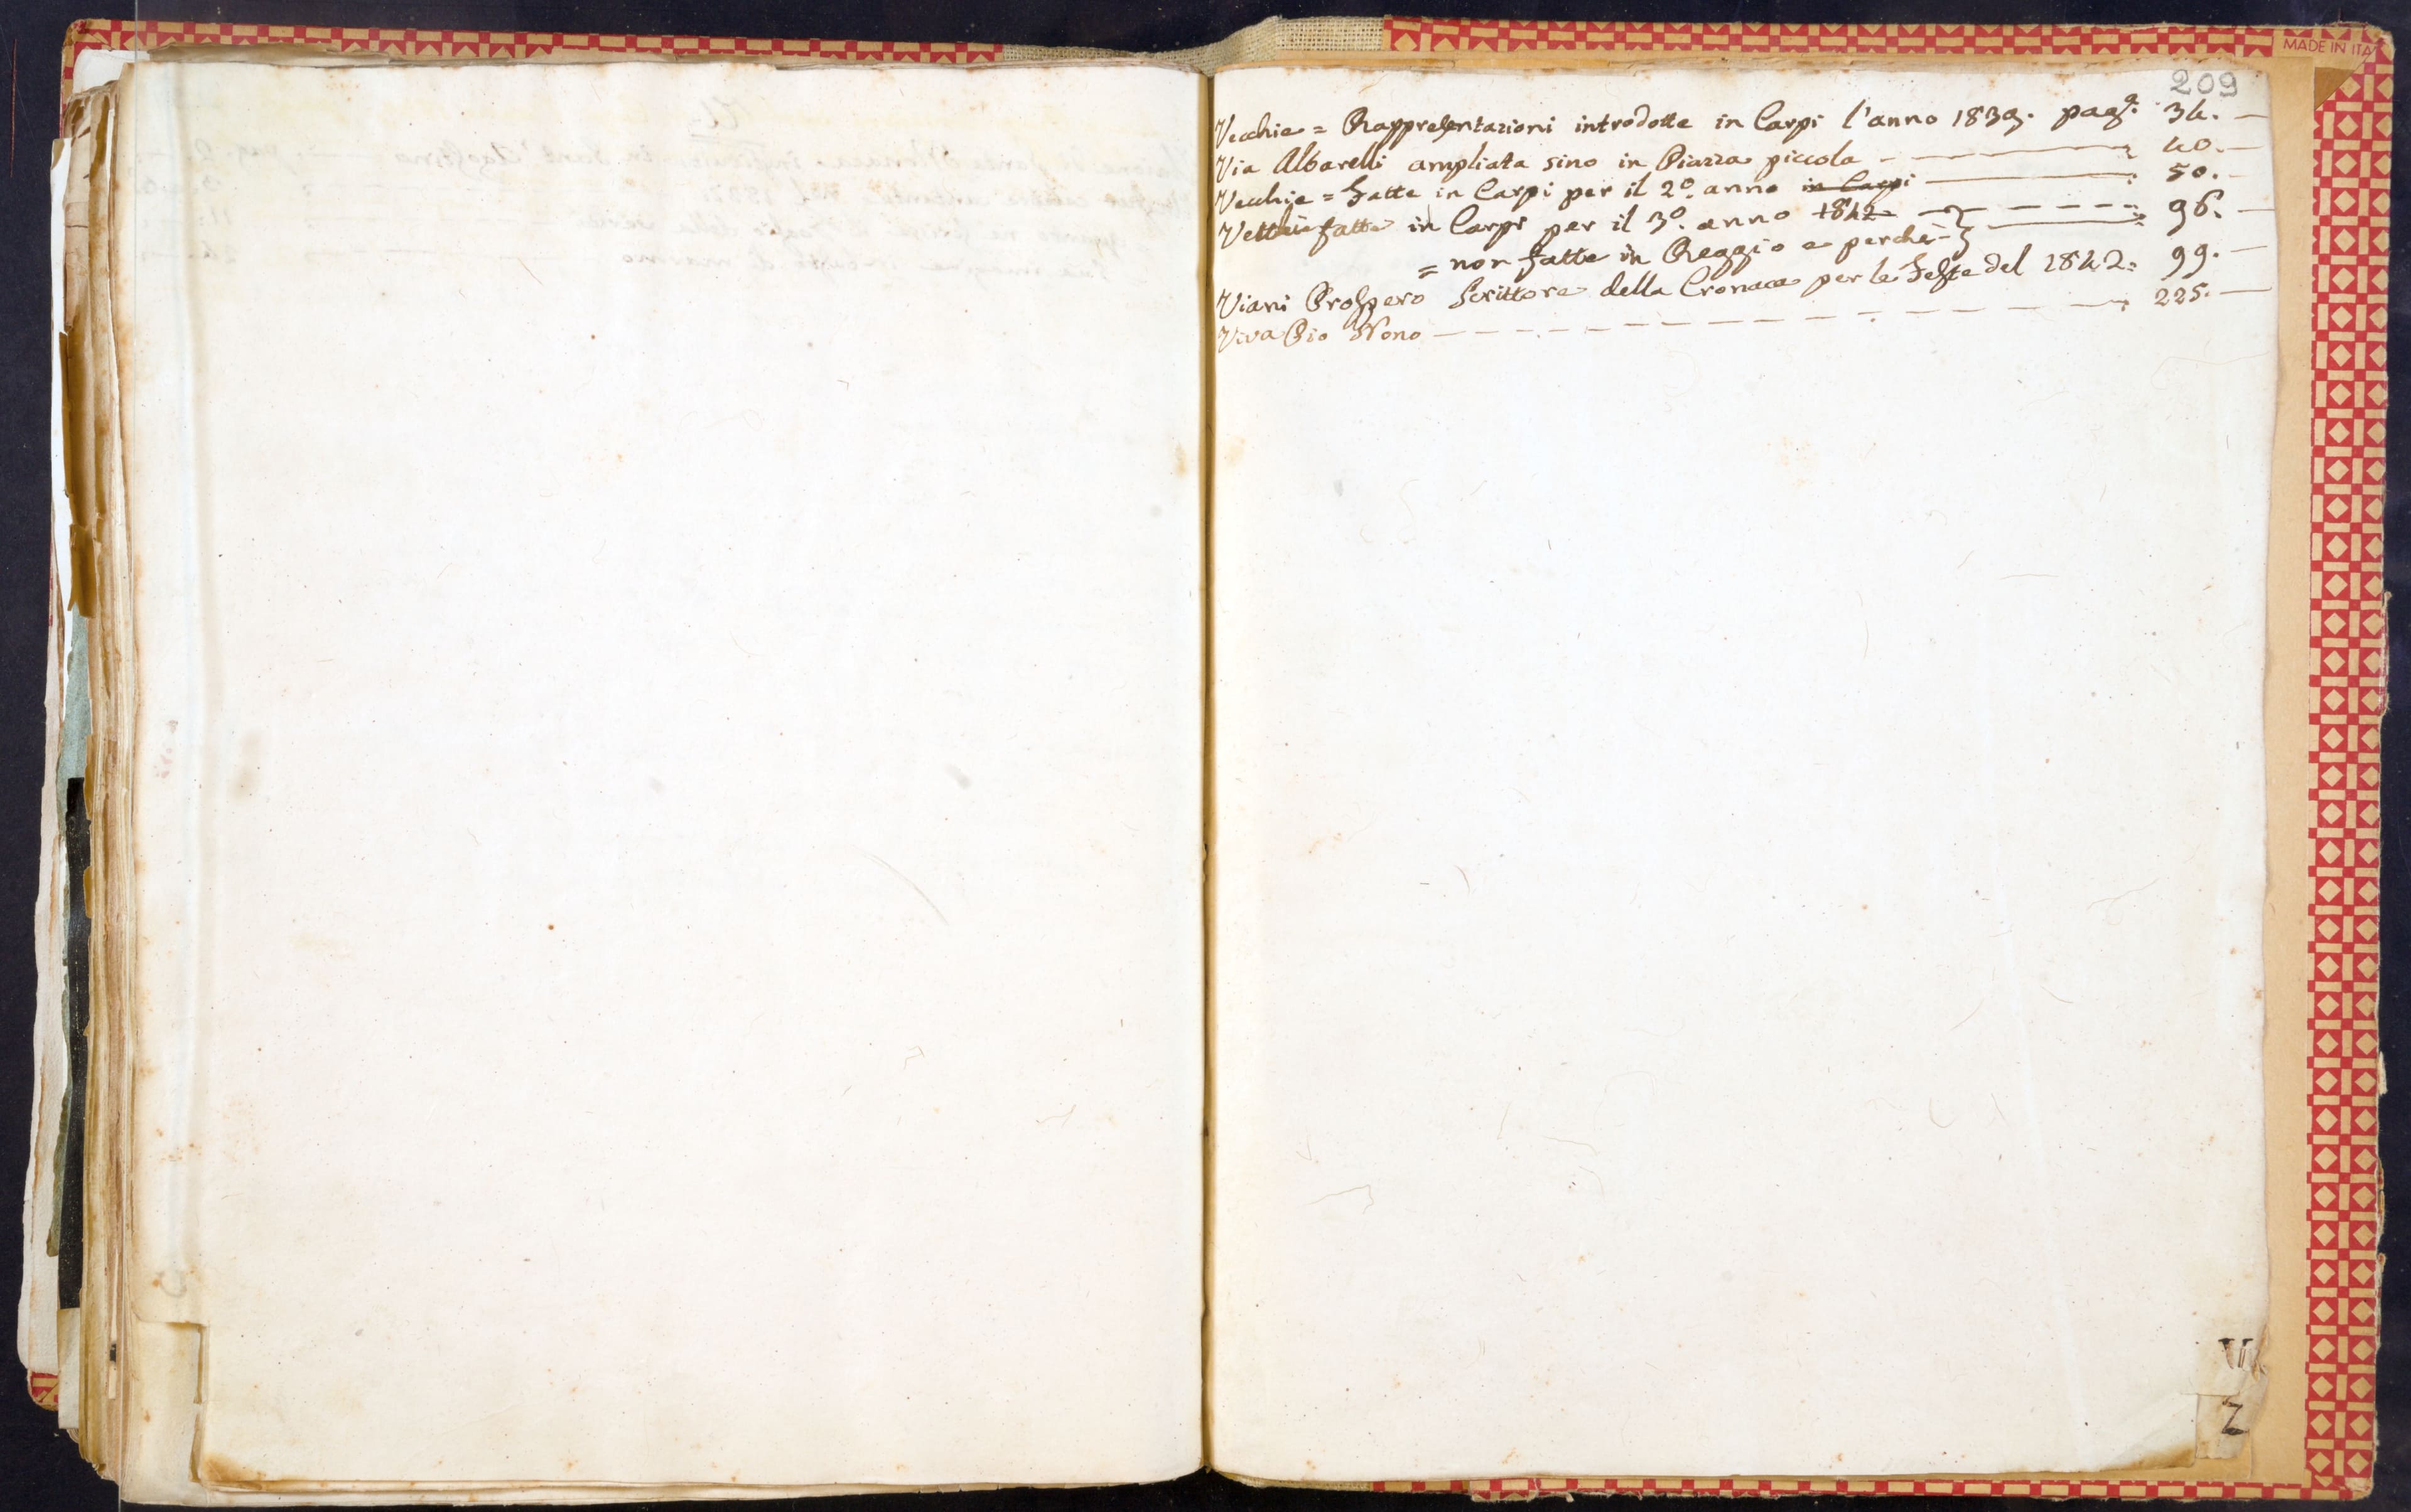 MADE IN ITA
209
Vecchie = Rappresentazioni introdotte in Carpi l'anno 1839. pag.e 34. —
Via Albarelli ampliata sino in Piazza piccola — : 40. —
Vecchie = Fatte in Carpi per il 2.o anno in Carpi — : 50. —
fatte in Carpi per il 3.o anno 1842 — : 96. —
= non fatte in Reggio e perchè —
Viani Prospero Scrittore della Cronaca per le Feste del 1842 : 99. —
Viva Pio Nono — : 225. —
V
Z